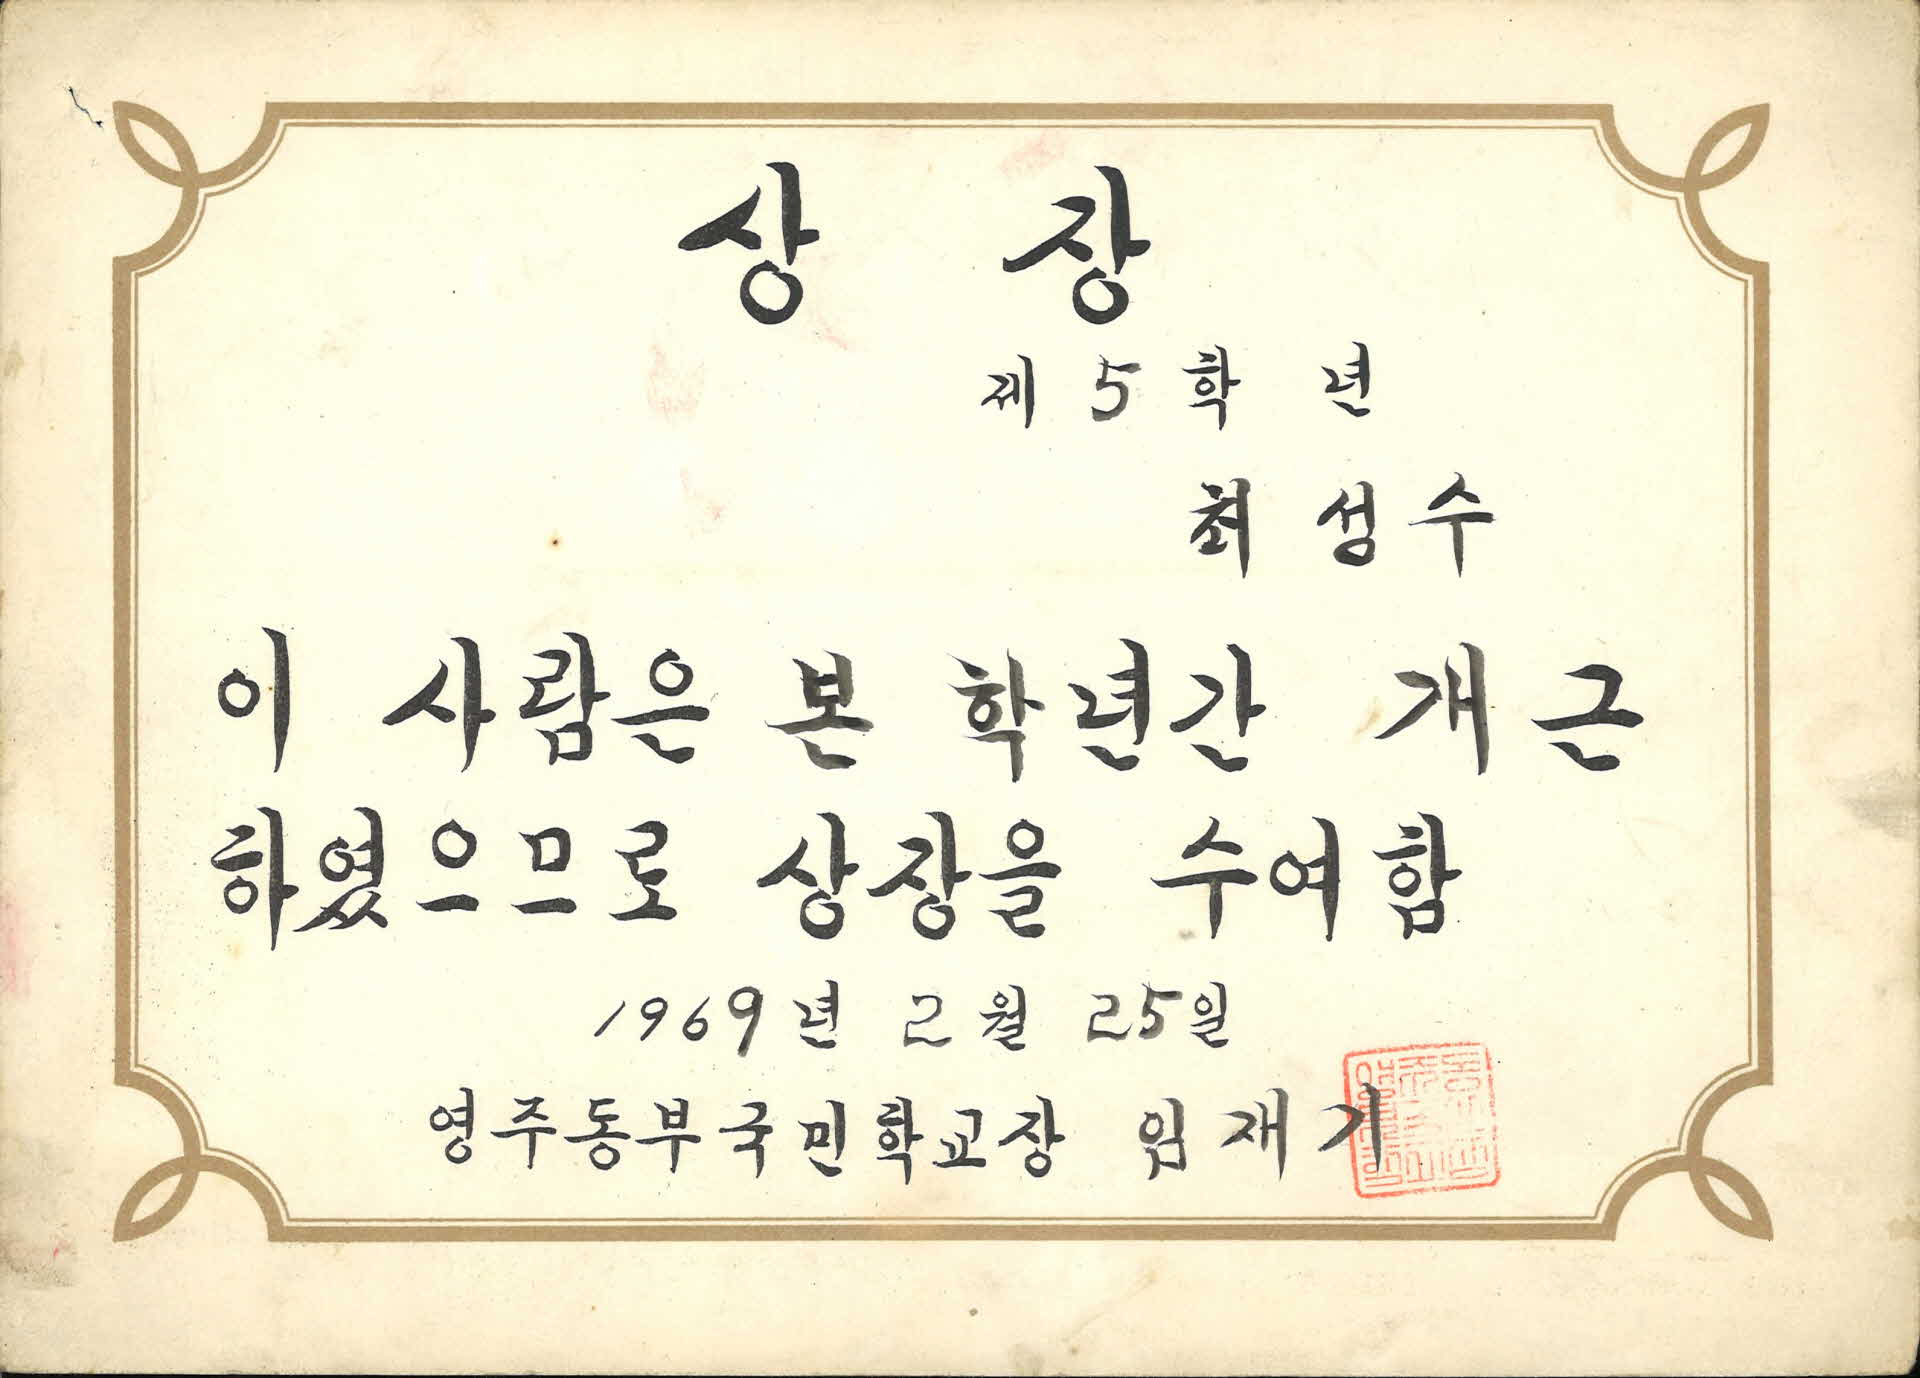 상 장
제 5 학 년
최 성 수
이 사람은 본 학년간 개근
하였으므로 상장을 수여함
1969년 2월 25일
영주동부국민학교장 임재기